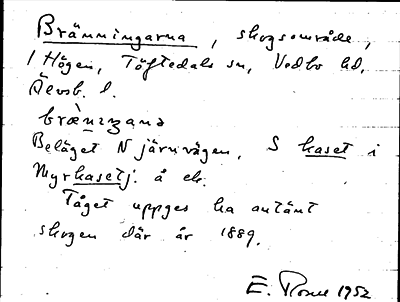 Bränningarna, skogsområde,
1 Högen, Töftedals sn, Vedbo hd,
Älvsb. l.
bræ̀niŋana
Beläget N järnvägen, S haset i
Myrhasetj. å ek.
Tåget uppges ha antänt
skogen där år 1889.
E. 1952